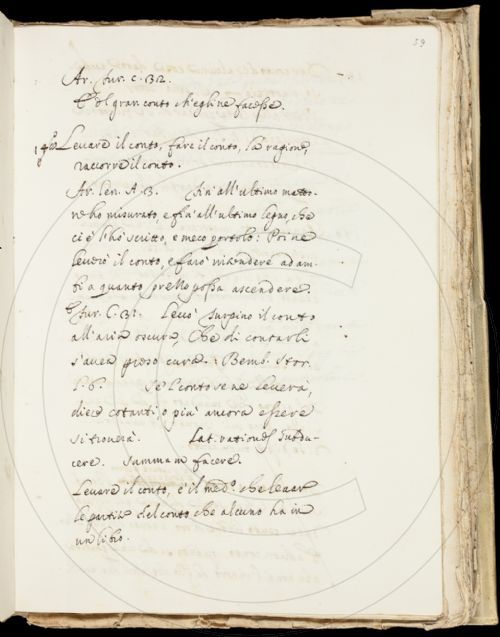 59
Ar. fur. c. 32.
E'l gran conto ch'egli ne facesse.
Levare il conto, fare il conto, la ragione,
raccorre il conto.
Ar. Len. A. 3. Fin all'ultimo matto-
ne ho misurato, e fin all'ultimo legno, che
ci è l'hò scritto, e meco portolo: Poi ne
leverò il conto, e farò intendere ad am-
bi a quanto prezzo possa ascendere.
fur. C. 31. Levò Surpino il conto
all'aria oscura, Che di contarli
s'avea preso cura. Bemb. Stor.
l. 6. Se'l conto se ne leverà,
diece cotanti, o più ancora essere
si troverà. Lat. rationes subdu-
cere. summam facere.
Levare il conto, è il med.º che levar
le partite del conto che alcuno ha in
un libro.